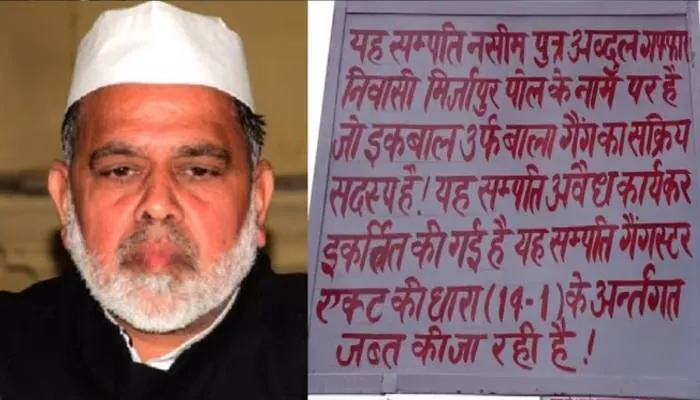 यह सम्पति नसीम पुत्र अब्दुल गफ्फार
निवासी मिर्जापुर पोल के नाम पर है
जो इकबाल उर्फ बाला गैंग का सक्रिय
सदस्य है! यह सम्पति अवैध कार्यकर
इकर्त्रित की गई है यह सम्पति गैंगस्टर
एक्ट की धारा (14-1) के अर्न्तगत
जब्त की जा रही है!